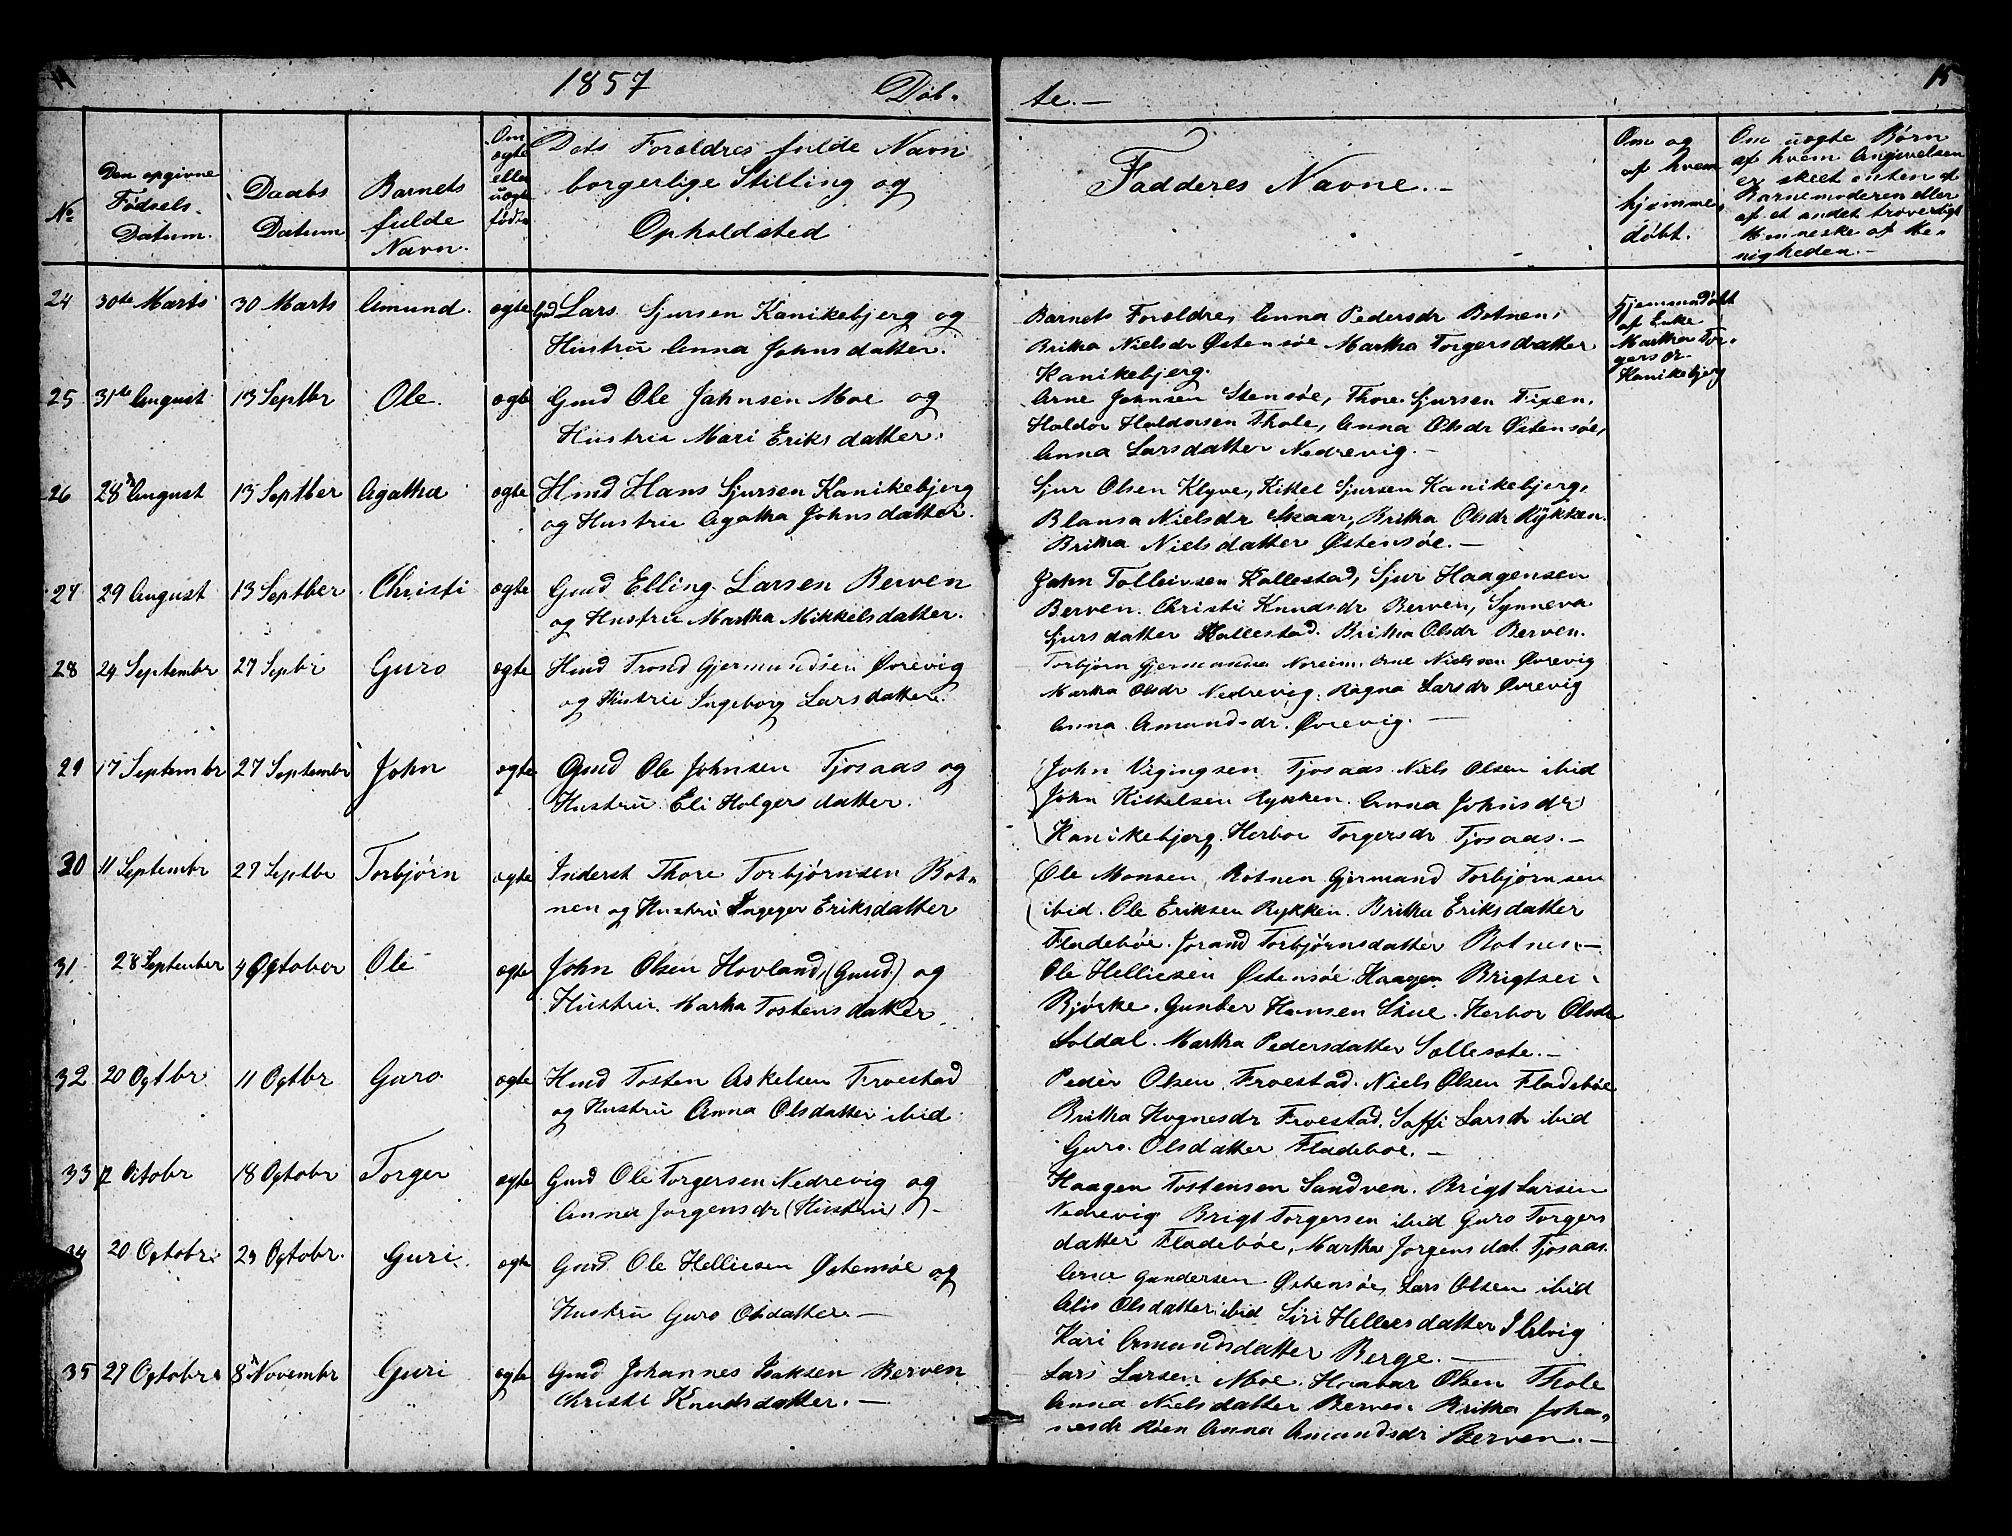 14
1857
Døb-
te.-
15
No
Den opgivne
Fødsels-
Datum.
Daabs
Datum
Barnets
fulde
Navn.
Om
ægte
eller
uægte
født.
Dets Foreldres fulde Navn
borgerlige Stilling og
Opholdsted
Fadderes Navne.-
Om og
af hvem
hjemme-
døbt.
Om uægte Børn
af hvem Angivelsen
er skeet enten af
Barnemoderen eller
af et andet troverdigt
Menneske af Me-
nigheden.-
24 30te Marts 30 Marts Amund. ægte Gmd Lars Sjursen Kanikebjerg og
Hustru Anna Johnsdatter.
Barnets Foreldre, Anna Pedersdr Botnen,
Britha Nielsdr Østensøe Martha Torgersdatter
Kanikebjerg.
Hjemmedøbt
af Enke
Martha Tor-
gersdr
Kanikebjerg
25 31te August 13 Septbr Ole. ægte Gmd Ole Johnsen Moe og
Hustru Mari Eriksdatter.
Arne Johnsen Stensøe, Thore Sjursen Fixen,
Haldor Haldorsen Thole, Anna Olsdr Østensøe,
Anna Larsdatter Nedrevig.-
26 28 August 13 Septber Agatha ægte Hmd Hans Sjursen Kanikebjerg
og Hustru Agatha Johnsdatter.
Sjur Olsen Klyve, Kittel Sjursen Kanikebjerg,
Blansa Nielsdr Skaar, Britha Olsdr Rykken.
Britha Nielsdatter Østensøe.-
27 29 August 13 Septber Christi ægte Gmd Elling Larsen Berven
og Hustru Martha Mikkelsdatter.
John Tolleivsen Kollestad, Sjur Haagensen
Berven. Christi Knudsdr Berven, Synneva
Sjursdatter Kollestad. Britha Olsdr Berven.
28 24 Septembr 27 Septbr Guro ægte Hmd Trond Gjermundsen Øvrevig
og Hustru Ingeborg Larsdatter.
Torbjørn Gjermundsen Noreim. Arne Nielsen Øvrevig
Martha Olsdr Nedrevig. Ragna Larsdr Øvrevig
Anna Amundsdr. Øvrevig.-
29 17 Septembr 27 Septembr John ægte Gmd Ole Johnsen Tjosaas og
Hustru Eli Holgersdatter.
John Vigingsen Tjosaas. Niels Olsen ibid
John Kittelsen Rykken. Anna Johnsdr
Kanikebjerg. Herbor Torgersdr Tjosaas.-
30 11 Septembr 27 Septbr Torbjørn ægte Inderst Thore Torbjørnsen Bot-
nen og Hustru Ingeger Eriksdatter
Ole Monsen Botnen Gjermund Torbjørnsen
ibid. Ole Eriksen Rykken. Britha Eriksdatter
Fladebøe. Jorand Torbjørnsdatter Botnen.-
31 28 September 4 Ogtober Ole ægte John Olsen Hovland (Gmd.) og
Hustru Martha Tostensdatter
Ole Helliesen Østensøe. Haagen Brigtsen
Bjørke. Gunder Hansen Skue. Herbor Olsdr
Soldal. Martha Pedersdatter Sollesote.-
32 20 Ogtbr 11 Ogtbr Guro ægte Hmd Tosten Askelsen Froestad
og Hustru Anna Olsdatter ibid
Peder Olsen Froestad. Niels Olsen Fladebøe
Britha Hognesdr Froestad. Soffi Larsdr ibid
Guro Olsdatter Fladeboe.-
33 12 Octobr 18 Ogtobr Torger ægte Gmd Ole Torgersen Nedrevig og
Anna Jorgensdr (Hustru).-
Haagen Tostensen Sandven. Brigt Larsen
Nedrevig Brigt Torgersen ibid Guro Torgers
datter Fladebøe, Martha Jorgensdat Tjosaas.
34 20 Ogtobr. 25 Ogtobr. Guri. ægte Gmd. Ole Helliesen Østensøe og
Hustru Guro Olsdatter.-
Arne Gundersen Østensøe, Lars Olsen ibid
Alis Olsdatter ibid Siri Helliesdatter
Kari Amundsdatter Berge.-
35 27 Ogtobr. 8 Novembr Guri ægte Gmd Johannes Isaksen Berven
Christi Knudsdatter.-
Lars Larsen Moe. Haavar Olsen Thole
Anna Nielsdatter Berven. Britha Joha-
nesdr Røen Anna Amundsdr Berven.-